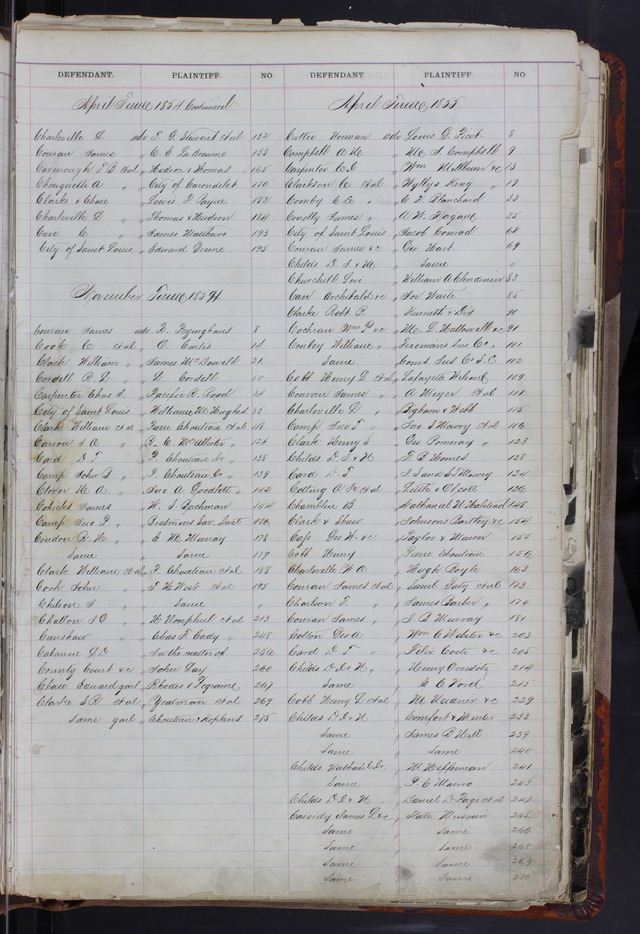 DEFENDANT. PLAINTIFF. NO.
April Term 1854 Continued
Charleville L adv T G Stewart et al 132
Conran James " C. C. La Beaume 153
Cavenough P B et al " Hudson & Thomas 165
Chouquette A " City of Carondelet 170
Clark & Chase " Lewis P Payne 182
Charleville L " Thomas & Hudson 184
Case C " James Matthews 193
City of Saint Louis " Edward 195
November Term 1854
Conran James adv H. 8
Cook C et al " O. Curtis 14
Clark William " James McDowell 21
Cordell R L " L. Cordell
Carpenter Chas A. " Pacific R. Road 34
City of Saint Louis " William M Hughes
Clark William et al " Pierre Chouteau et al 118
Carson S A " R. C. McAllister 124
Card D. T " P. Chouteau Jr 138
Camp John B " P. Chouteau Jr 139
Clover H A " Jno A Goodlett 142
James " W. S. Lachman 144
Camp Jno P " Boatmens Sav. Inst 150
Condon R. H " E M Murray 178
Same " Same 179
Clark William et al " P. Chouteau et al 188
Cook John " T. H West et al 195
Chilson S " Same "
Challon S C " H et al 213
Cunshaw " Chas F. Cady " 248
Cabanne D D " In the matter of 256
County Court &c " John Day 260
Chase Edward gar " Rhodes & Pegrame 267
Clarke S R et al " Yeatman et al 269
Same gar " Chouteau & Hopkins 275
DEFENDANT. PLAINTIFF. NO.
April Term 1855
Cutter Norman adv Louis G. Picot 8
Campbell A M " M. S Campbell 9
Carpenter C C " Wm Milburn &c 13
Clarkson C et al " Wyllys King " 17
Comby C C " C. L Blanchard 33
Conolly James " A W 35
City of Saint Louis " Jacob Conrad 68
Conran James &c " Geo Hart 69
Childs D. S & H. " Same "
Churchill Levi " William A Clendennin 83
Carr Archibald &c " Jos Waite 85
Clarke Robt P. " Kennett & Dix 90
Cochran Wm P &c " M. L Hallowell &c 91
Conley William " Firemans Ins Co. 101
Same " Comt Ins Co S. L 102
Cobb Henry L et al " Lafayette Wilson 109
Conran James " A Meyer et al 111
Charleville L " Bigham & Webb 115
Camp Jno T " Jno S Maury et al 116
Clark Henry S " Geo Pomroy " 123
Childs D. S & H " F B Homes 128
Card D. T " 134
Cotting A Jr et al " Little & Olcott 136
Chamblin B " Nathaniel W Halstead 148
Clark & Shaw " Johnsons Bartley &c 154
Cass Geo W. &c " Taylor & Mason 155
Cobb Henry " Pierre Chouteau 156
Charleville W A " Hugh Boyle 163
Conran James et al " Saml Gaty et al 173
Charlson T. " James Barker " 174
Conran James " S. B Murray 181
Colton Geo A " Wm C Webster &c 203
Card D. T " Felix Coste &c 205
Childs D. S & H " Henry Overstolz 214
Same " C. C Ford 215
Cobb Henry L et al " M Meaner &c 229
Childs D. S & H " Comfort & Winter 233
Same " James B Hill 239
Same " Same 240
Childs Nathanl Jr " M Heffernan 241
Same " P. C 243
Childs D. S & H " Daniel D Page et al 247
Cassidy James L &c " State Missouri 265
Same " Same 266
Same " Same 268
Same " Same 269
Same " Same 270